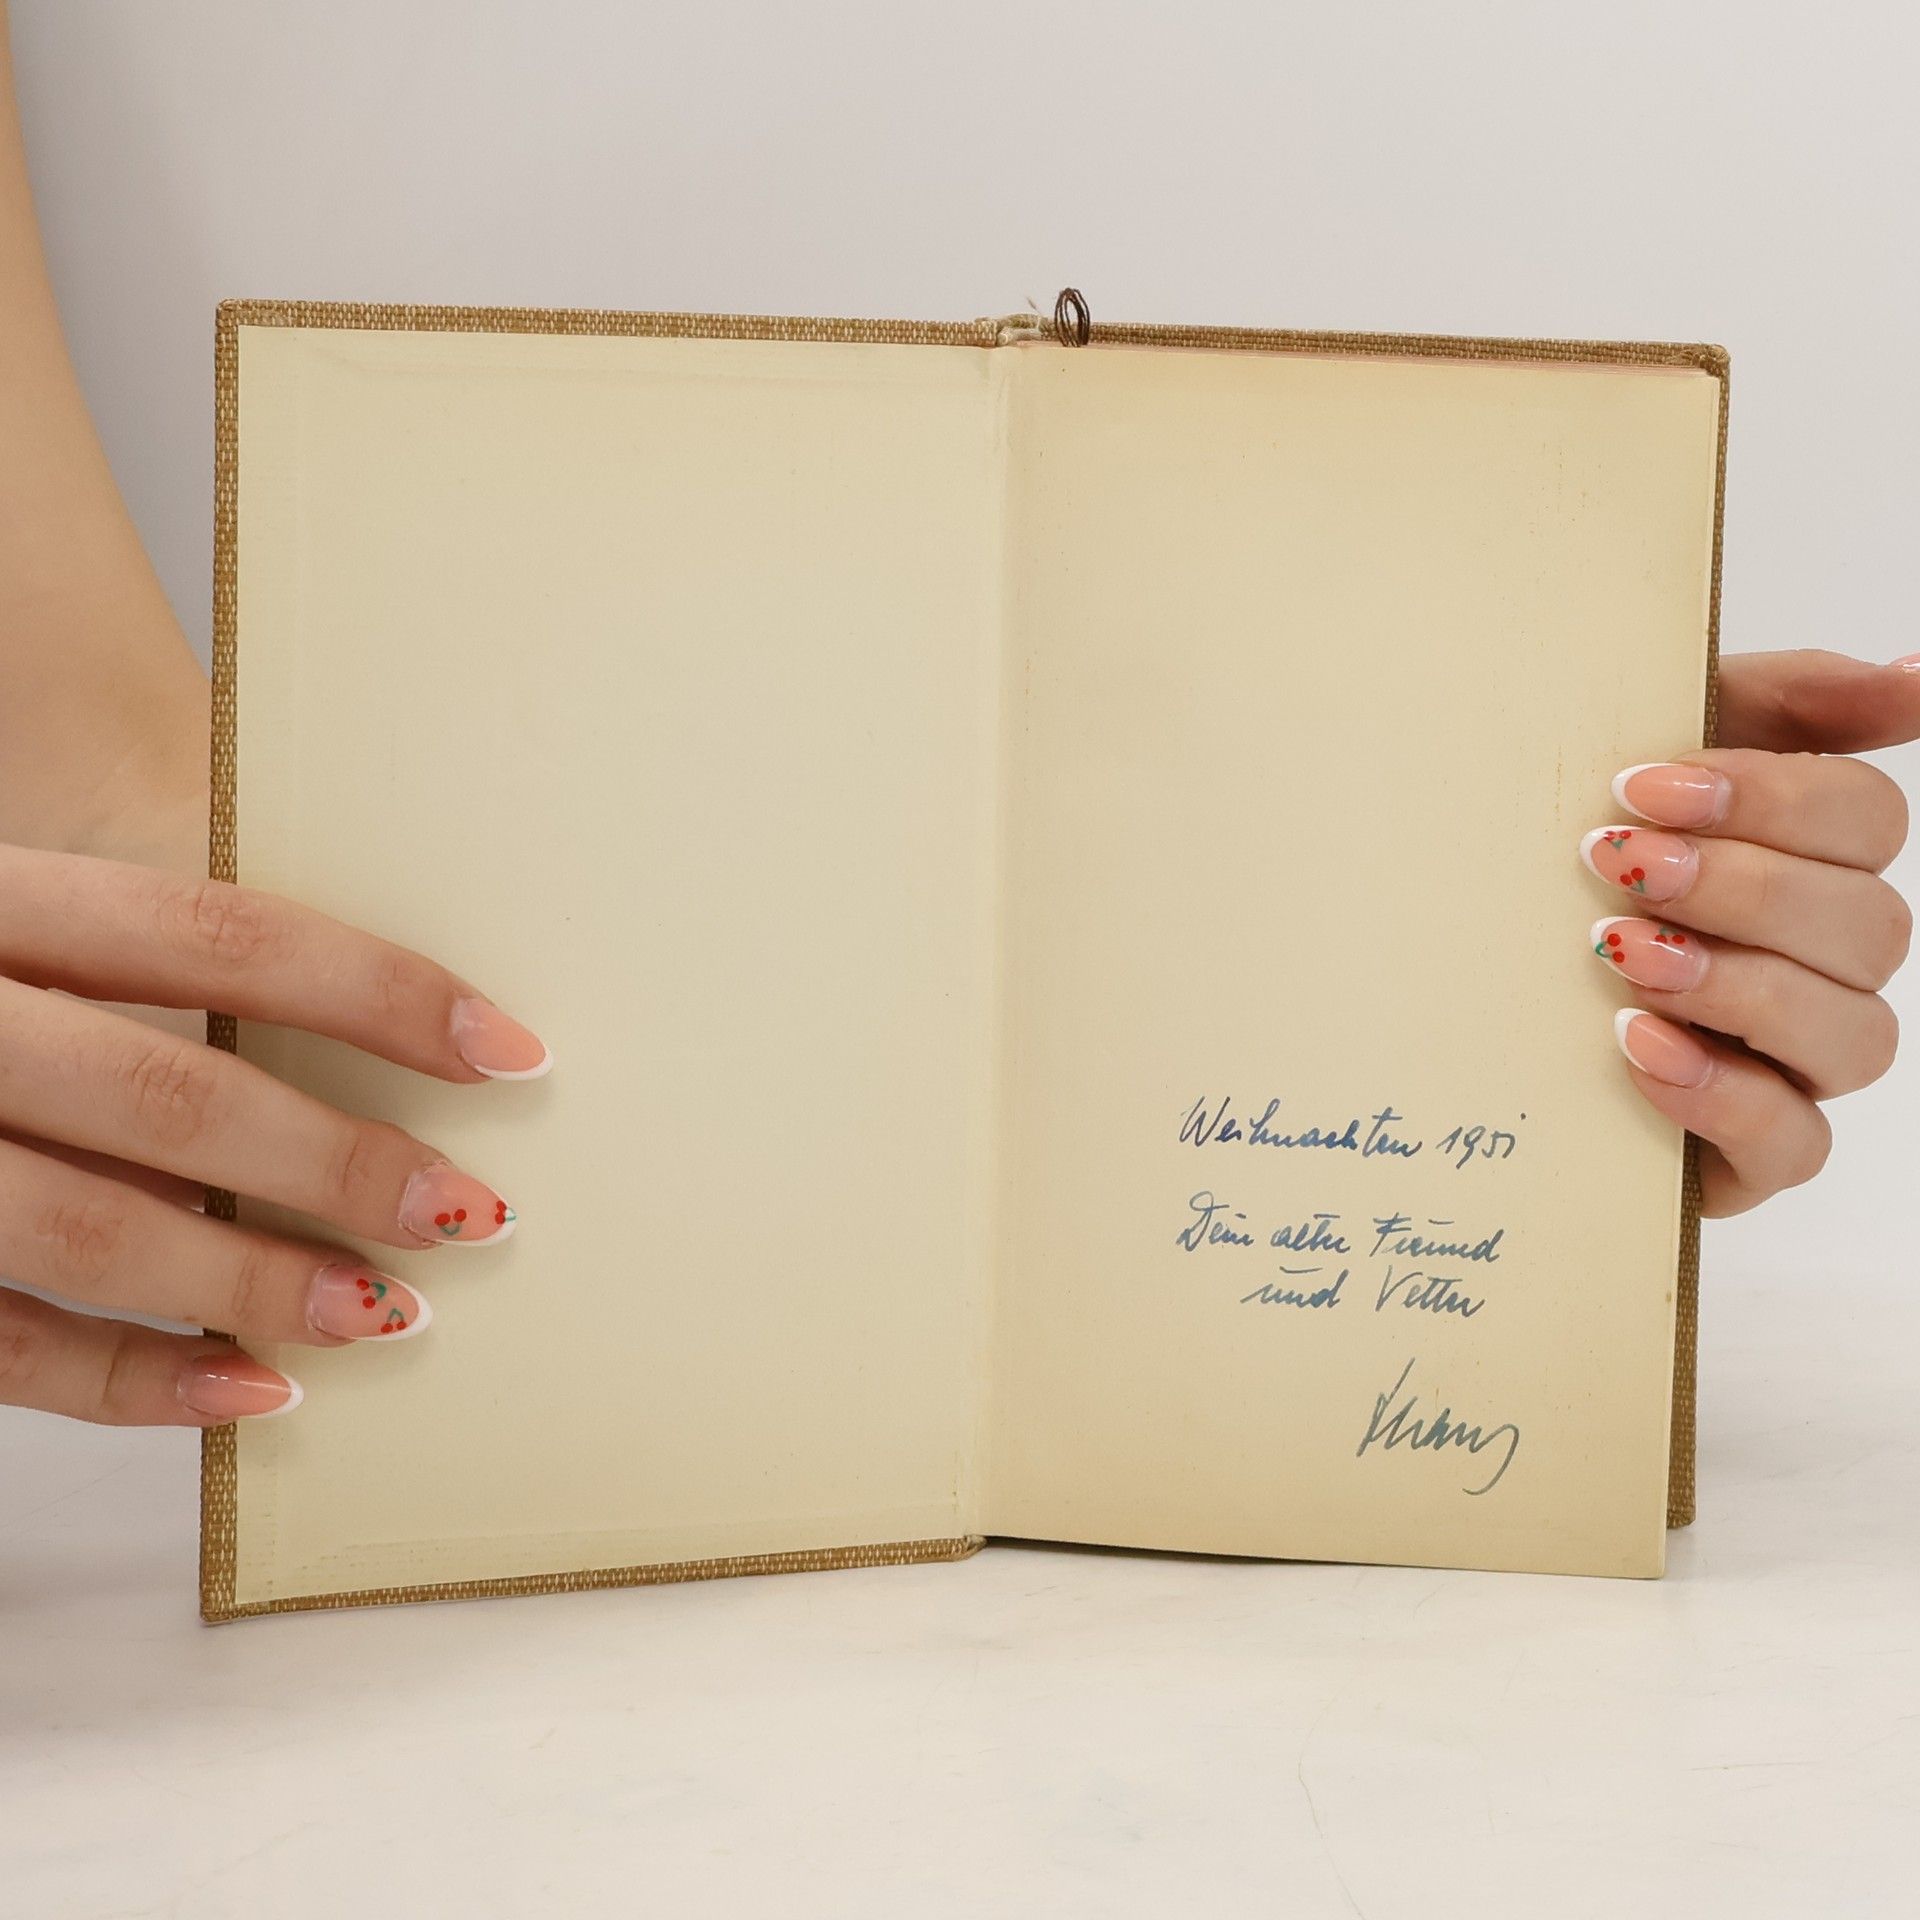 Weihnachten 1951
Dein alter Freund
und Vetter